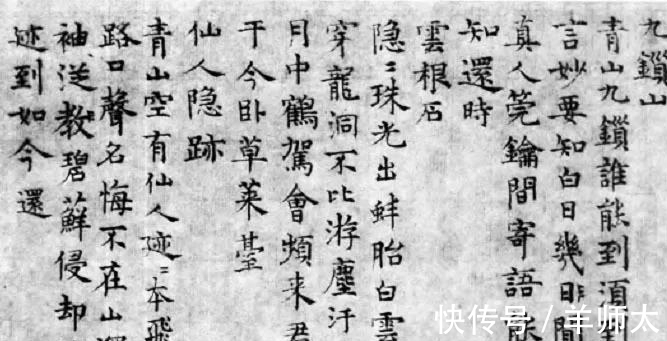 九鎖山
青山九鎖誰能到須到
言妙要知白日幾時間
真人筦鑰間寄語
知還時
雲根石
隐〻珠光出蚌胎白雲
穿龍洞不比游塵汙
月中鶴駕會頻来君
于今卧草莱臺
仙人隐跡
青山空有仙人迹〻本飛
路口聲名悔不在山
袖送教碧蘚侵却
迹到如今還
快传号／羊师太